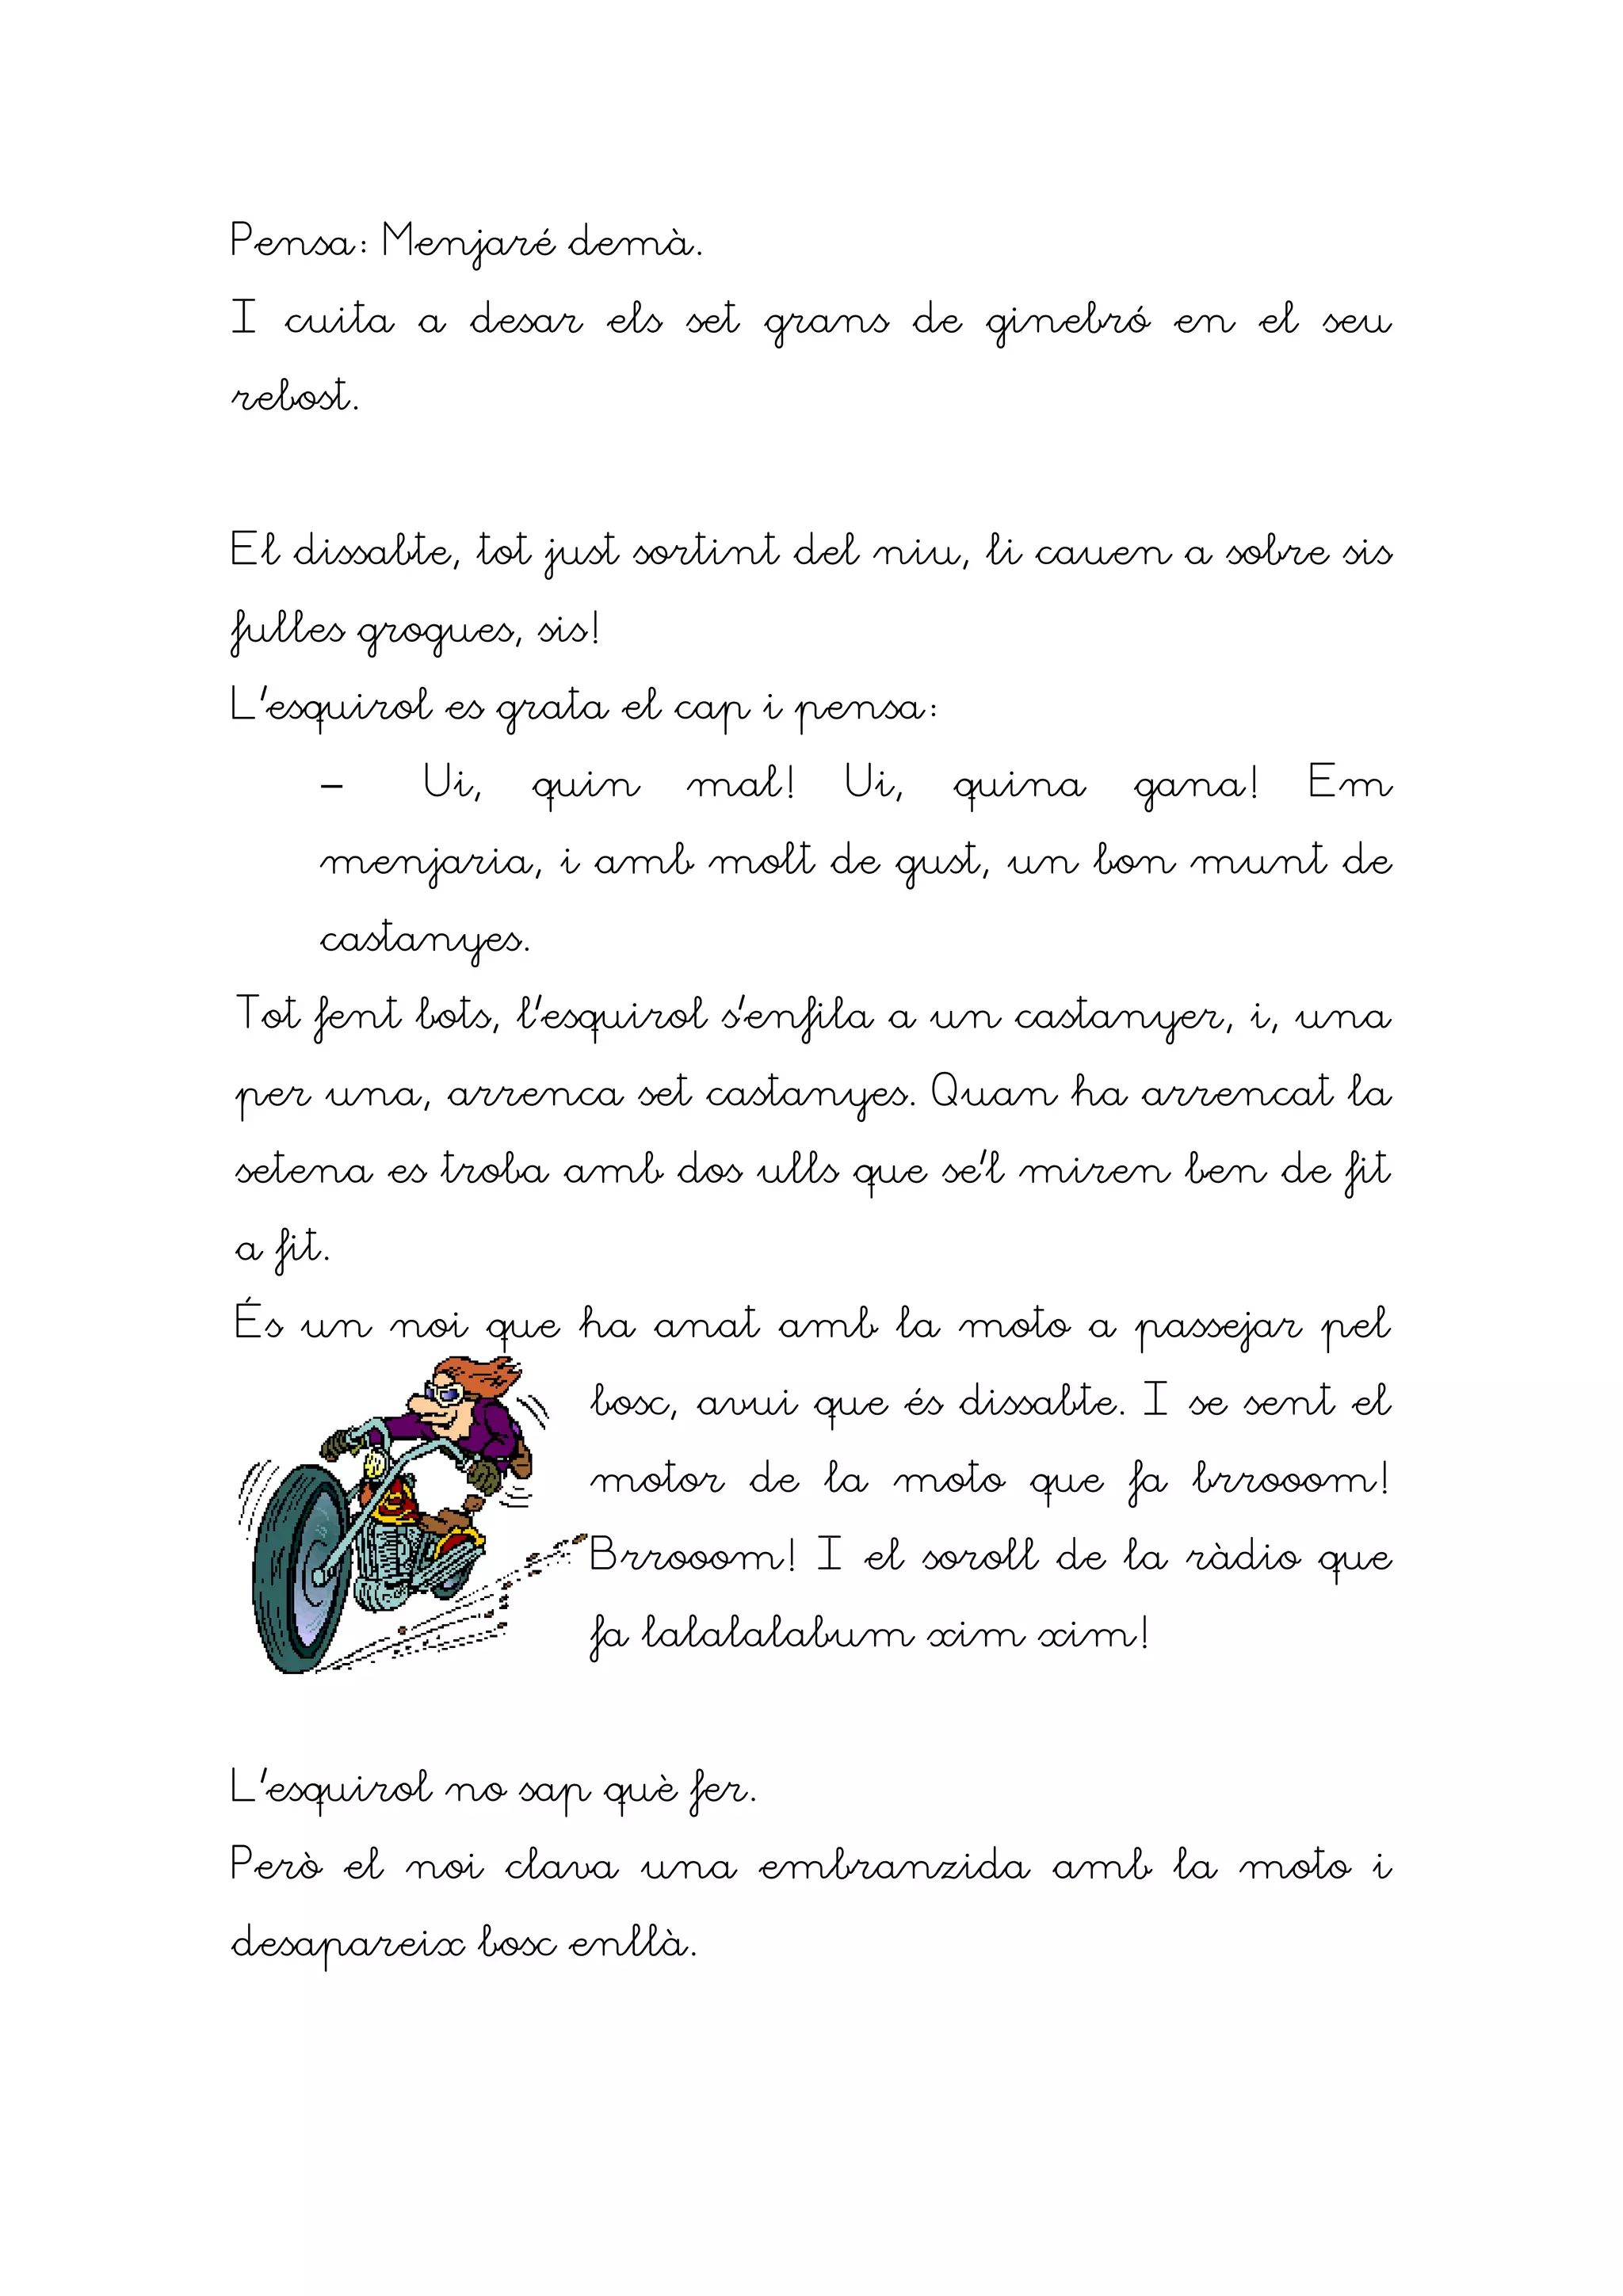 Pensa: Menjaré demà.
I cuita a desar els set grans de ginebró en el seu
rebost.
El dissabte, tot just sortint del niu, li cauen a sobre sis
fulles grogues, sis!
L'esquirol es grata el cap i pensa:
- Ui, quin mal! Ui, quina gana! Em
menjaria, i amb molt de gust, un bon munt de
castanyes.
Tot fent bots, l'esquirol s'enfila a un castanyer, i, una
per una, arrenca set castanyes. Quan ha arrencat la
setena es troba amb dos ulls que se'l miren ben de fit
a fit.
És un noi que ha anat amb la moto a passejar pel
bosc, avui que és dissabte. I se sent el
motor de la moto que fa brrooom!
Brrooom! I el soroll de la ràdio que
fa lalalalabum xim xim!
L'esquirol no sap què fer.
Però el noi clava una embranzida amb la moto i
desapareix bosc enllà.